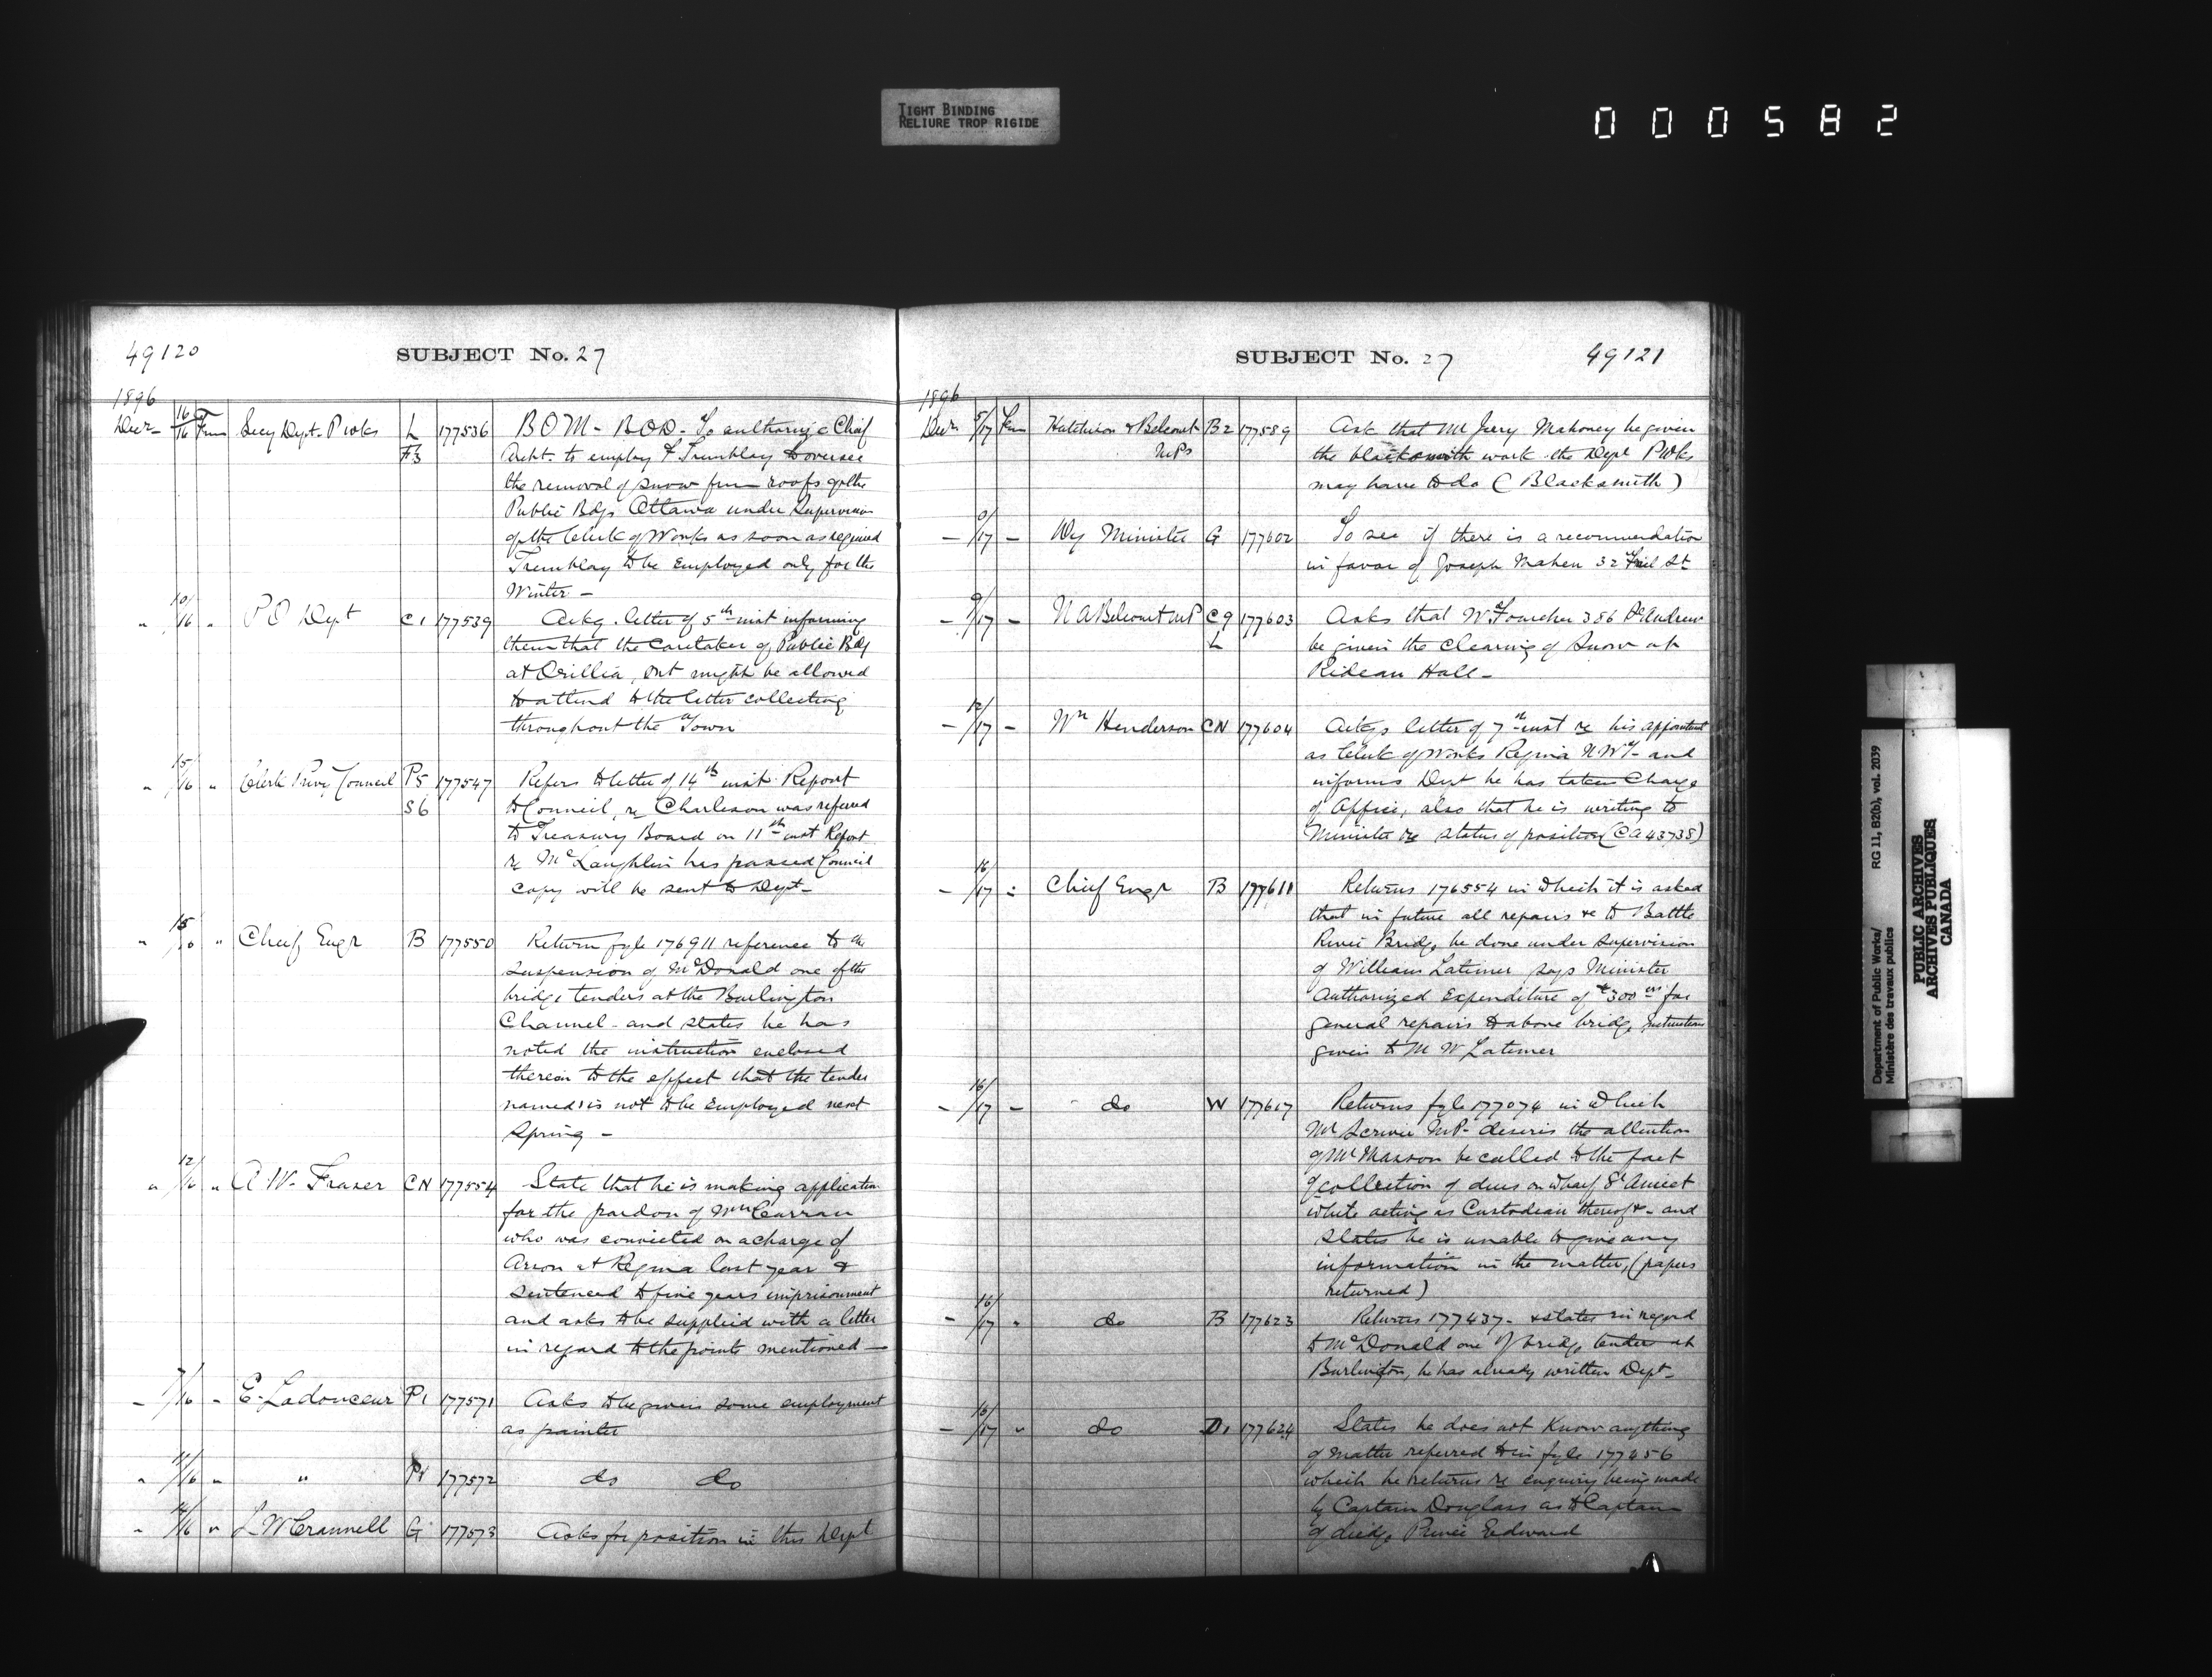 TIGHT BINDING
RELIURE TROP RIGIDE
000582
49120
SUBJECT No. 27
1896
Decr 16/16 From Secy Dept. P Wks L 177536 BOM - BOD - To authorize Chief
F3 Archt. to employ F Tremblay to oversee
the removal of snow from roofs of the
Public Bdgs Ottawa under Supervision
of the Clerk of Works as soon as required
Tremblay to be Employed only for the
Winter -
" 10/16 " P O Dept C1 177539 Ackg. letter of 5th inst informing
them that the Caretaker of Public Bdg
at Orillia, Ont might be allowed
to attend to the letter collecting
throughout the Town
" 15/16 " Clerk Privy Council P5 177547 Refers to letter of 14th inst. Report
S6 to Council, re Charleson was referred
to Treasury Board on 11th inst Report
re McLaughlin has passed Council
copy will be sent to Dept-
" 15/16 " Cheif Engr B 177550 Return fyle 176911 reference to the
suspension of McDonald one of the
bridge tenders at the Burlington
Channel - and states he has
noted the instruction enclosed
therein to the effect that the tender
named is not to be Employed next
Spring -
" 12/16 " A. W. Fraser CN 177554 State that he is making application
for the pardon of Wm Curran
who was convicted on a charge of
Arson at Regina last year &
sentenced to five years imprisonment
and asks to be supplied with a letter
in regard to the points mentioned -
- 7/16 " E. Ladouceur P1 177571 Asks to be given some employment
as painter
" 11/16 " " P1 177572 do do
" 14/16 " L W Crannell G 177573 Asks for position in this Dept
SUBJECT No. 27
49121
1896
Decr 5/17 From Hutchison & Belcourt B2 177589 Ask that Mr Jerry Mahoney be given
M.Ps the blacksmith work the Dept P Wks
may have to do (Blacksmith)
- 0/17 - Dy Minister G 177602 To see if there is a recommendation
in favor of Joseph Mahen 32 St
- 9/17 - N A Belcourt M.P C9 177603 Asks that W. Foucher 356 St Andrew
L be given the Clearing of Snow at
Rideau Hall -
- 12/17 - Wm Henderson CN 177604 Ackgs letter of 7th inst re his appointment
as Clerk of Works Regina N.W.T - and
informs Dept he has taken Charge
of Office, also that he is writing to
Minister re status of position (CA 43738)
- 16/17 - Chief Engr B 177611 Returns 176554 in which it is asked
that in future all repairs &c to Battle
River Bridge be done under supervision
of William Latimer says Minister
Authorized Expenditure of $300 for
general repairs to above bridge, Instructions
given to Mr W Latimer
- 16/17 - do W 177617 Returns fyle 177074 in which
Mr Scriver M.P. desires the attention
of Mr Masson be called to the fact
of collection of dues on Wharf St Anicet
while acting as Custodean thereof &- and
states he is unable to give any
information in the matter, (papers
returned)
- 16/17 " do B 177623 Returns 177437 - & states in regard
to McDonald one of bridge tender at
Burlington, he has already written Dept-
- 16/17 " do D1 177624 States he does not Know anything
of matter referred to in fyle 177456
which he returns re enquiry being made
by Captain Douglass as to Captain
of dredge Prince Edward
Department of Public Works/ RG 11, B2(b), vol. 2039
Ministère des travaux publics
PUBLIC ARCHIVES
ARCHIVES PUBLIQUES
CANADA